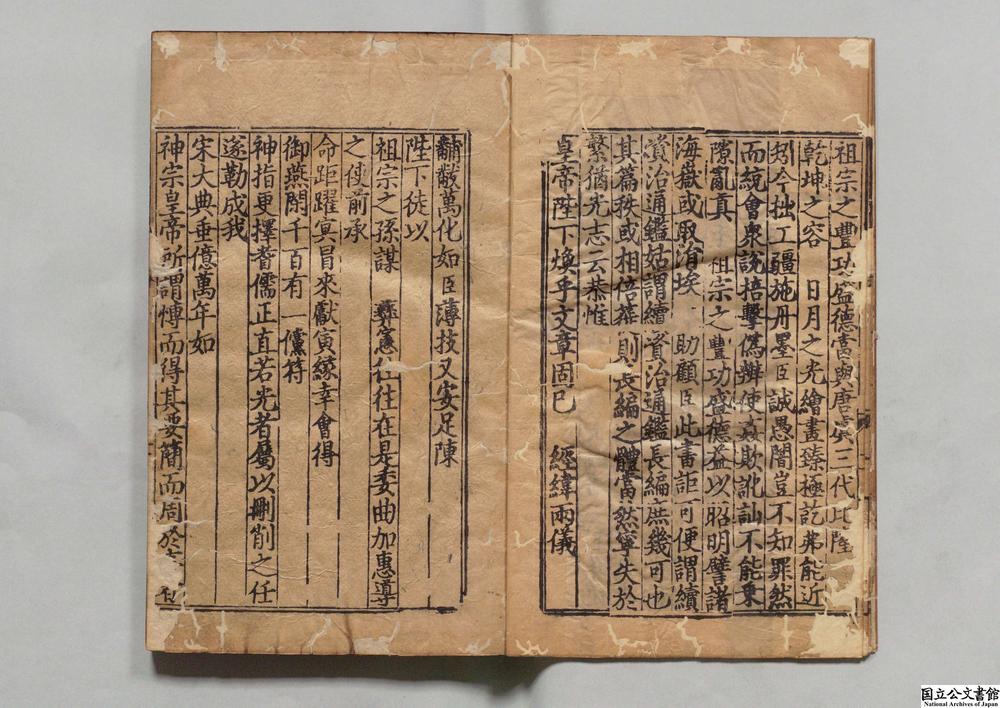 祖宗之豐功盛德當與唐虞三代比隆
乾坤之容　日月之光繪畫臻極訖弗能近
矧今拙工疆施丹墨臣誠愚闇豈不知罪然
而統會衆說掊擊僞辨使姦欺訛訕不能乗
隙亂真　祖宗之豐功盛德益以昭明譬諸
海嶽或取涓埃　助顧臣此書詎可便謂續
資治通鑑姑謂續　資治通鑑長編庶幾可也
其篇秩或相倍蓰　則長編之體當然寧失於
繁猶光志云恭惟
皇帝陛下煥乎文章固已　經緯兩儀
黼黻萬化如臣薄技又安足陳
陛下徒以
祖宗之孫謀　彞憲往往在是委曲加惠導
之使前承
命距躍冥冒來獻寅緣幸會得
御燕閒千百有一儻符
神指更擇耆儒正直若光者屬以刪削之任
遂勒成我
宋大典垂億萬年如
神宗皇帝所謂博而得其要蕳而周於
国立公文書館
National Archives of Japan